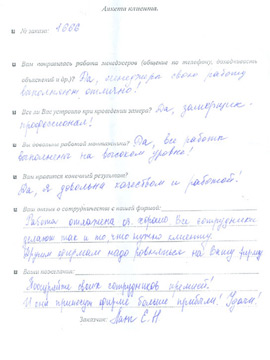 Анкета клиента.
№ заказа: 1000
Вам понравилась работа менеджеров (общение по телефону, доходчивость
объяснений и др.)? Да, менеджера свою работу
выполняют отлично!
Все ли Вас устроило при проведении замера? Да, замерщик -
профессионал!
Вы довольны работой монтажников? Да, все работы
выполнены на высоком уровне!
Вам нравится конечный результат?
Да, я довольна качеством и работой!
Ваш отзыв о сотрудничестве с нашей фирмой:
Работа отлажена оч. хорошо. Все сотрудники
делают так и то, что нужно клиенту.
Другим фирмам надо равняться на Вашу фирму
Ваши пожелания:
Поощряйте своих сотрудников премией!
И они принесут фирме больше прибыли! Удачи!
Заказчик: Е.Н